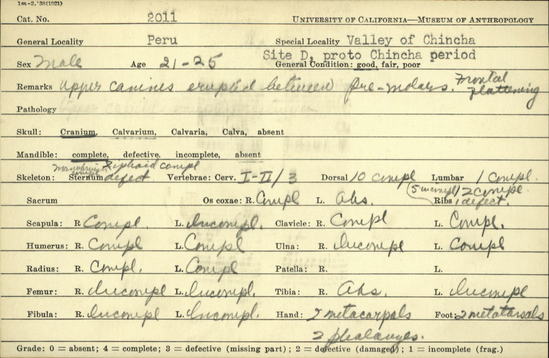 1m-2,'38(1931)
Cat. No. 2011 UNIVERSITY OF CALIFORNIA—MUSEUM OF ANTHROPOLOGY
General Locality Peru Special Locality Valley of Chincha
Site D, proto Chincha period
Sex Male Age 21-25 General Condition: good, fair, poor
Remarks Upper canines erupted between pre-molars. Frontal flattening
Pathology
Skull: Cranium, Calvarium, Calvaria, Calva, absent
Mandible: complete, defective, incomplete, absent
Manubrium Xiphoid compl
Skeleton: Sternum defect Vertebrae: Cerv. I-II/3 Dorsal 10 compl Lumbar 1 Compl.
Sacrum Os coxae: R. Compl L. Abs. (5 incompl 12 compl. Ribs 1 defect.
Scapula: R Compl. L. Incompl. Clavicle: R. Compl L. Compl.
Humerus: R. Compl L. Compl Ulna: R. Incompl L. Compl
Radius: R. Compl. L. Compl Patella: R. L.
Femur: R. Incompl L. Incompl. Tibia: R. Abs. L. Incompl
Fibula: R. Incompl L. Incompl Hand: 2 metacarpals Foot: 2 metatarsals
2 phalanges.
Grade: 0 = absent; 4 = complete; 3 = defective (missing part); 2 = defective (damaged); 1 = incomplete (frag.)